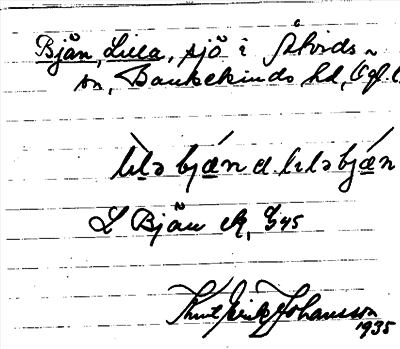 Bjän, Lilla, sjö i Åtvids~
sn, Bankekinds hd, Ögl.
lila bjän el. lila bjän
L Bjän ek, G45
Knut Erik Johansson
1935